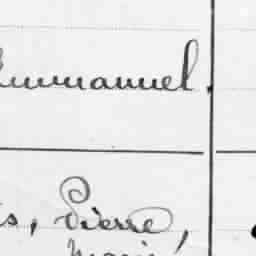 Emmanuel.
s, Pierre,